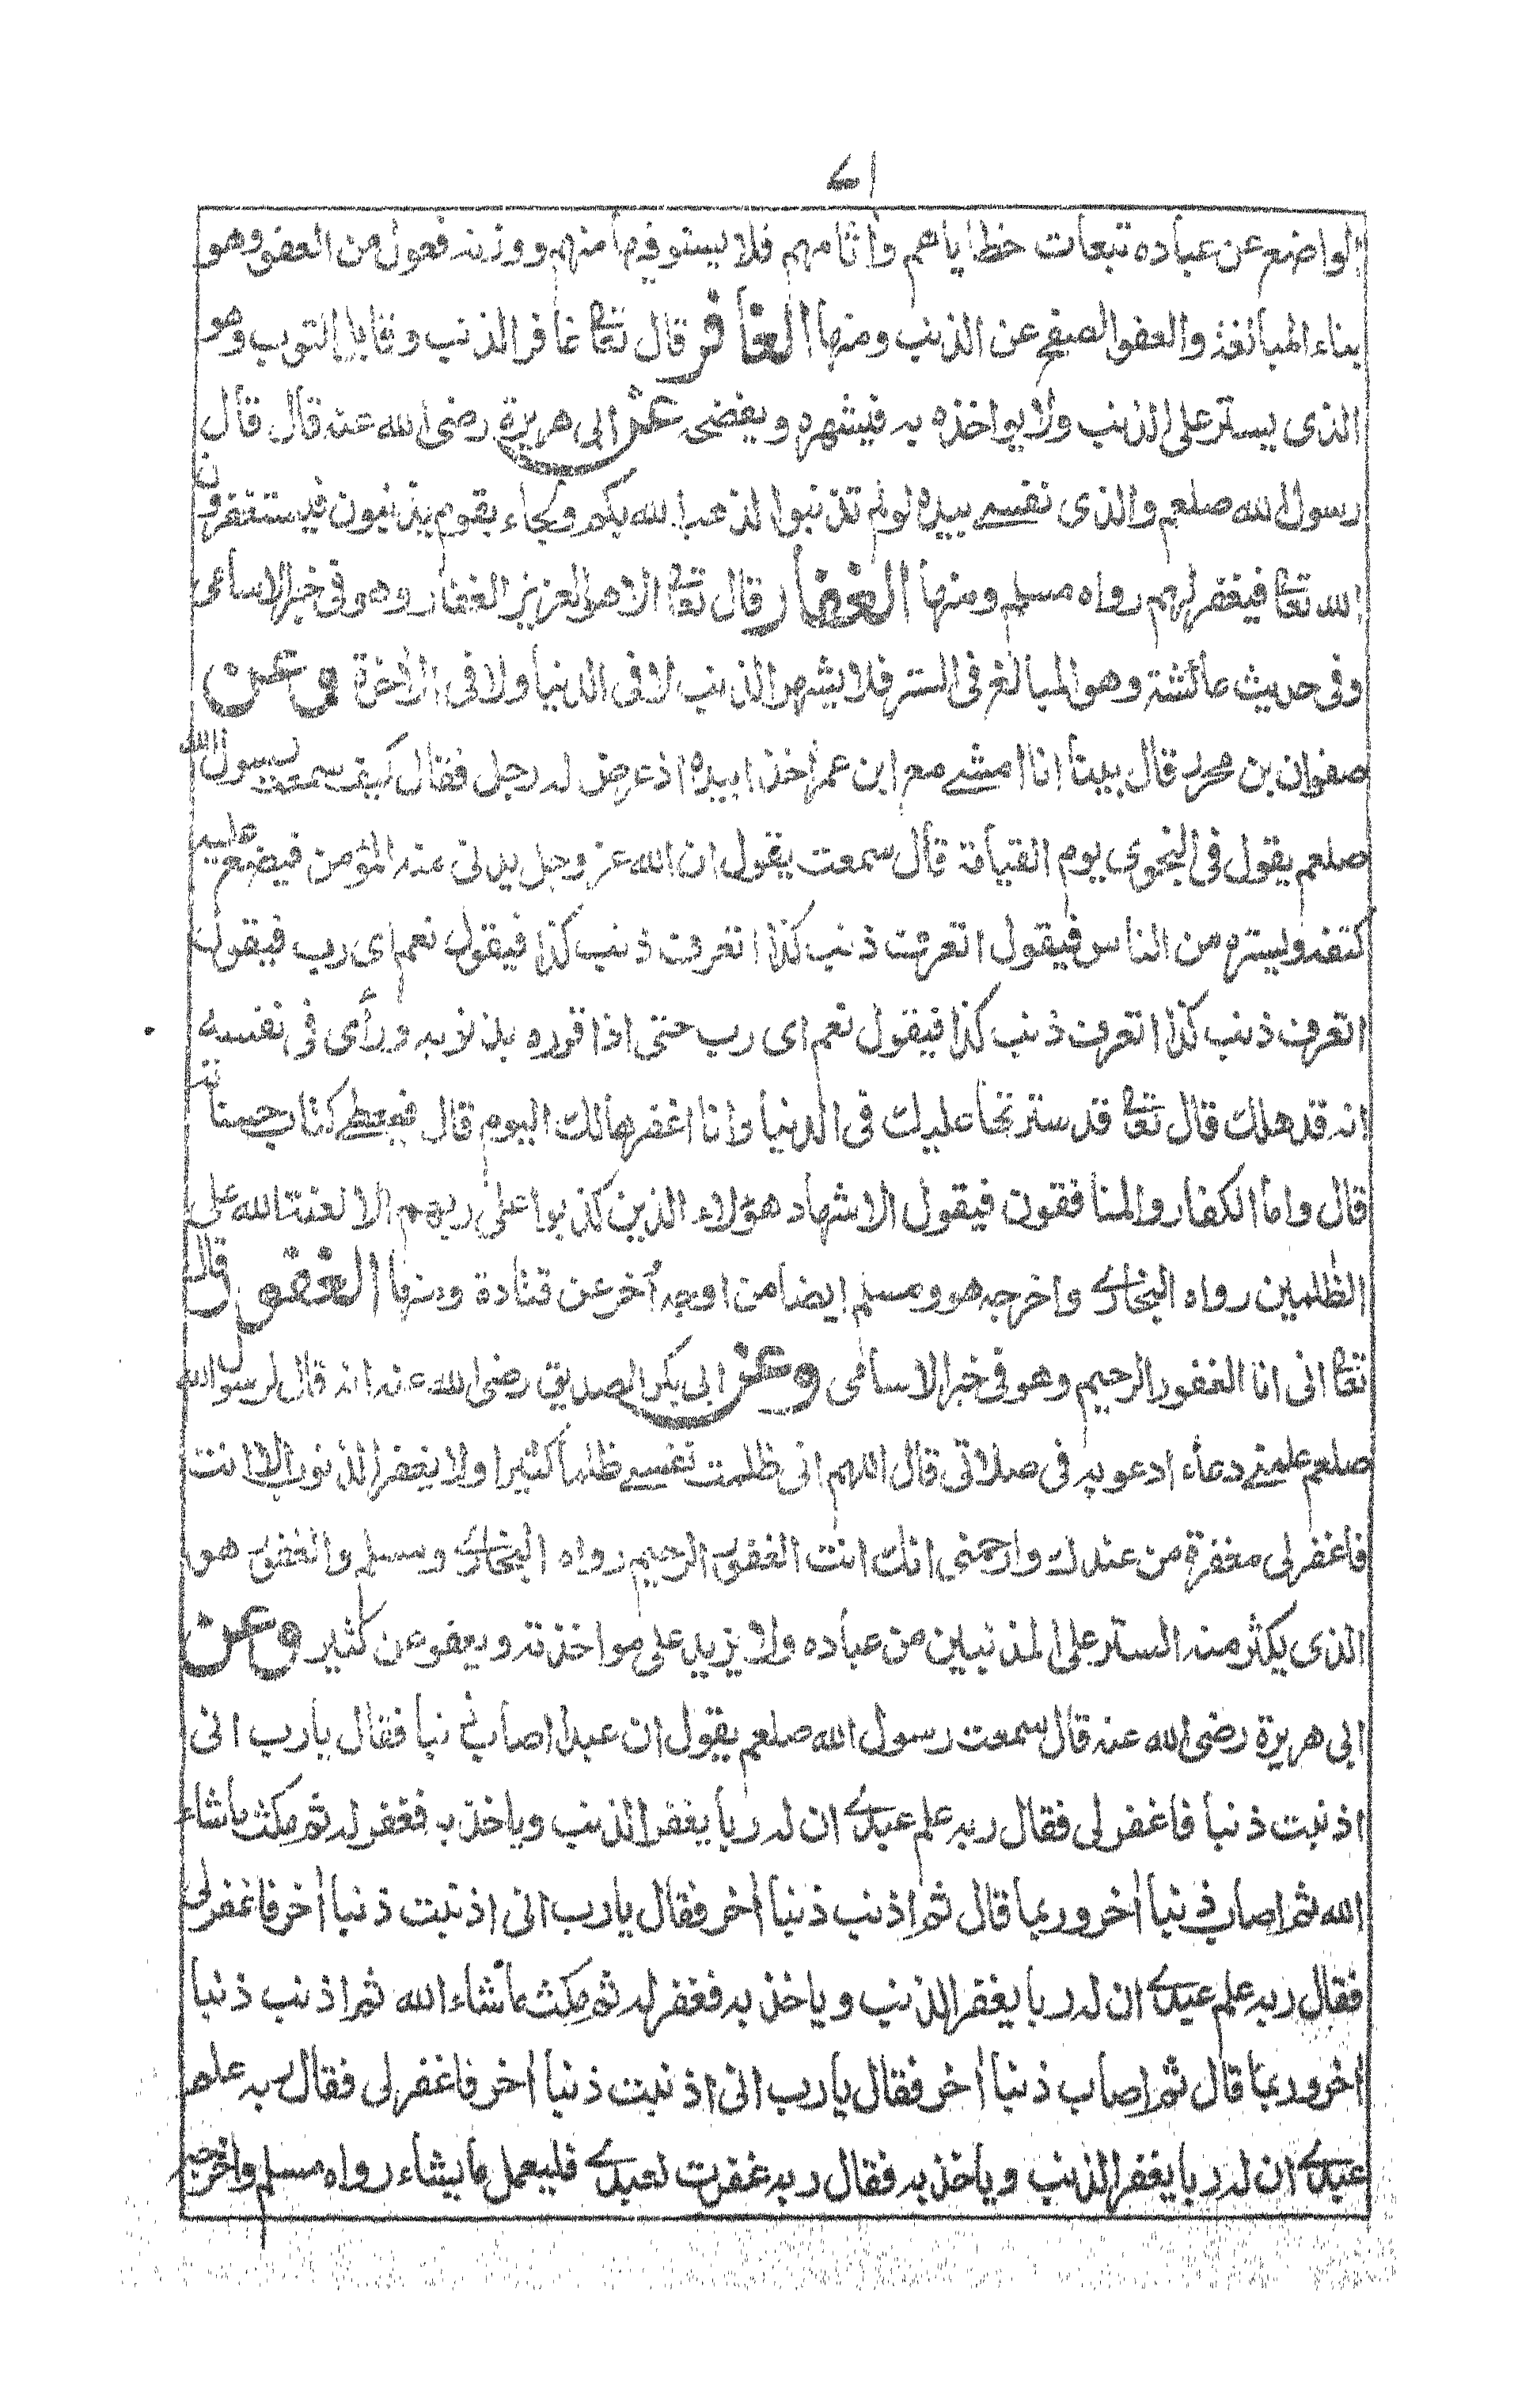 الواضع عن عباده تبعات خطاياهم واثامهم فلا يستوفيها منهم ووزنه فعول من العفو وهو
بناء المبالغة والعفو الصفح عن الذنب ومنها الغافر قال تعالى غافر الذنب وقابل التوب وهو
الذى يستر على الذنب ولا يواخذه به فيشهره ويفضحه عن ابى هريرة رضى الله عنه قال قال
رسول الله صلعم والذى نفسے بيده لو لم تذنبوا لذهب الله بكم ولجاء بقوم يذنبون فيستغفرون
الله تعالى فيغفر لهم رواه مسلم ومنها الغفار قال تعالى الا هو العزيز الغفار وهو فى خبر الاسامى
وفى حديث عائشة وهو المبالغ فى الستر فلا يشهر الذنب لا فى الدنيا ولا فى الاخرة وعن
صفوان بن محرز قال بينا انا امشے مع ابن عمر اخذا بيده اذ عرض له رجل فقال كيف سمعت رسول الله
صلعم يقول فى النجوى يوم القيامة قال سمعت يقول ان الله عز وجل يدنى منه المؤمن فيضع عليه
كنفه ويستره من الناس فيقول اتعرف ذنب كذا اتعرف ذنب كذا فيقول نعم اى رب فيقول
اتعرف ذنب كذا اتعرف ذنب كذا فيقول نعم اى رب حتى اذا قرره بذنوبه ورأى فى نفسه
انه قد هلك قال تعالى قد سترتها عليك فى الدنيا وانا اغفرها لك اليوم قال فيعطے كتاب حسناته
قال واما الكفار والمنافقون فيقول الاشهاد هؤلاء الذين كذبوا على ربهم الا لعنت الله على
الظلمين رواه البخارے واخرجه هو ومسلم ايضا من اوجه أخر عن قتادة ومنها الغفور قال
تعالى انى انا الغفور الرحيم وهو فى خبر الاسامى وعن ابى بكر الصديق رضى الله عنه انه قال لرسول الله
صلعم علمنے دعاء ادعو به فى صلاتى قال اللهم انى ظلمت نفسے ظلما كثيرا ولا يغفر الذنوب الا انت
فاغفر لى مغفرة من عندك وارحمنى انك انت الغفور الرحيم رواه البخارے ومسلم والغفور هو
الذى يكثر منه الستر على المذنبين من عباده ولا يزيد على مواخذته ويعفو عن كثير وعن
ابى هريرة رضى الله عنه قال سمعت رسول الله صلعم يقول ان عبدا اصاب ذنبا فقال يا رب انى
اذنبت ذنبا فاغفر لى فقال ربه علم عبدے ان له ربا يغفر الذنب وياخذ به فغفر له ثم مكث ما شاء
الله ثم اصاب ذنبا أخر وربما قال ثم اذنب ذنبا أخر فقال يا رب انى اذنبت ذنبا أخر فاغفر لى
فقال ربه علم عبدے ان له ربا يغفر الذنب وياخذ به فغفر له ثم مكث ما شاء الله ثم اذنب ذنبا
اخر وربما قال ثم اصاب ذنبا أخر فقال يا رب انى اذنبت ذنبا أخر فاغفر لى فقال ربه علم
عبدے ان له ربا يغفر الذنب وياخذ به فقال ربه غفرت لعبدے فليعمل ما يشاء رواه مسلم واخرجه